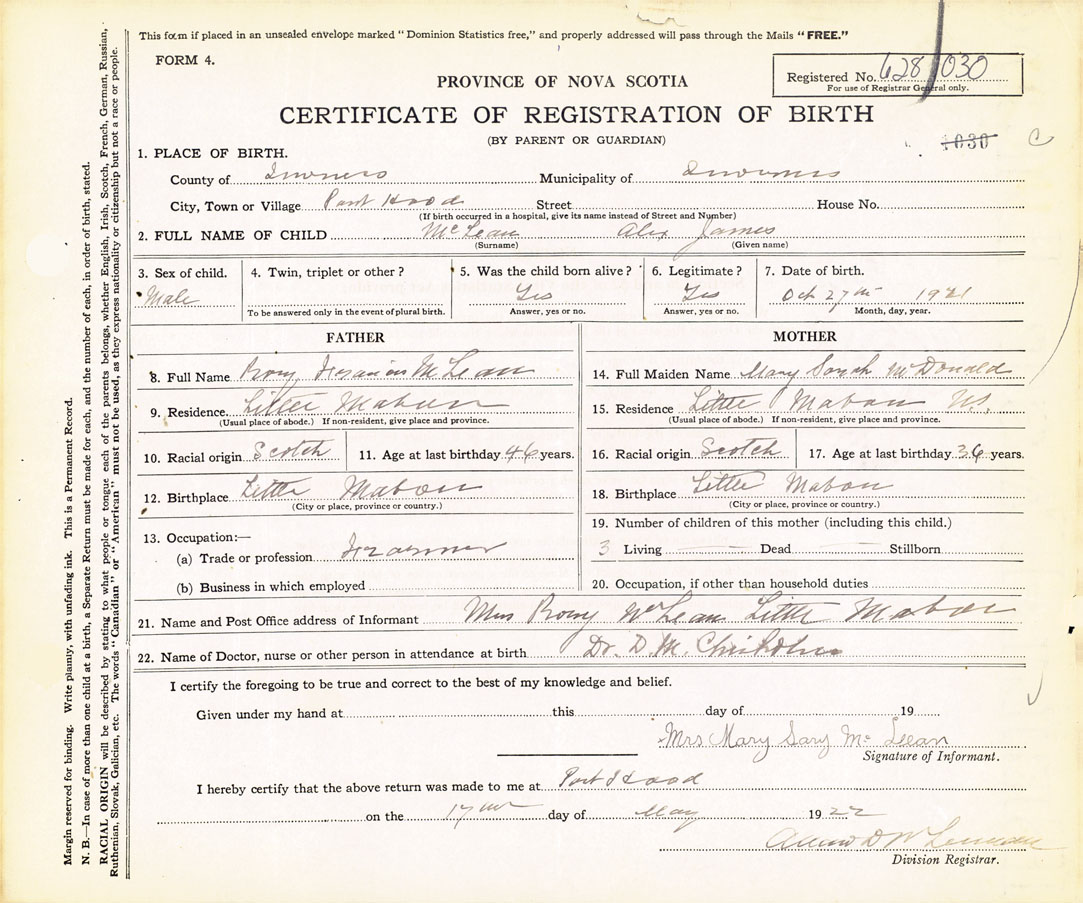 This form if placed in an unsealed envelope marked "Dominion Statistics free," and properly addressed will pass through the Mails "FREE."
FORM 4.
Registered No. 628 030
For use of Registrar General only.
PROVINCE OF NOVA SCOTIA
CERTIFICATE OF REGISTRATION OF BIRTH
(BY PARENT OR GUARDIAN)
1030
1. PLACE OF BIRTH.
County of Inverness Municipality of Inverness
City, Town or Village Port Hood Street House No.
(If birth occurred in a hospital, give its name instead of Street and Number)
2. FULL NAME OF CHILD McLean Alex James
(Surname) (Given name)
3. Sex of child. 4. Twin, triplet or other? 5. Was the child born alive? 6. Legitimate? 7. Date of birth.
Male Yes Yes Oct 27th 1921
To be answered only in the event of plural birth. Answer, yes or no. Answer, yes or no. Month, day, year.
FATHER MOTHER
8. Full Name Rory Francis McLean 14. Full Maiden Name Mary Sarah McDonald
9. Residence Little Mabou 15. Residence Little Mabou N.S.
(Usual place of abode.) If non-resident, give place and province. (Usual place of abode.) If non-resident, give place and province.
10. Racial origin Scotch 11. Age at last birthday 46 years. 16. Racial origin Scotch 17. Age at last birthday 36 years.
12. Birthplace Little Mabou 18. Birthplace Little Mabou
(City or place, province or country.) (City or place, province or country.)
13. Occupation:— 19. Number of children of this mother (including this child.)
(a) Trade or profession Farmer 3 Living Dead Stillborn
(b) Business in which employed 20. Occupation, if other than household duties
21. Name and Post Office address of Informant Mrs Rory McLean Little Mabou
22. Name of Doctor, nurse or other person in attendance at birth Dr. D. M. Chisholm
I certify the foregoing to be true and correct to the best of my knowledge and belief.
Given under my hand at this day of 19
Mrs Mary Sary Mc Lean
Signature of Informant.
I hereby certify that the above return was made to me at Port Hood
on the 17th day of May 1922
Division Registrar.
Margin reserved for binding. Write plainly, with unfading ink. This is a Permanent Record.
N. B.—In case of more than one child at a birth, a Separate Return must be made for each, and the number of each, in order of birth, stated.
RACIAL ORIGIN will be described by stating to what people or tongue each of the parents belongs, whether English, Irish, Scotch, French, German, Russian,
Ruthenian, Slovak, Galician, etc. The words "Canadian" or "American" must not be used, as they express nationality or citizenship but not a race or people.